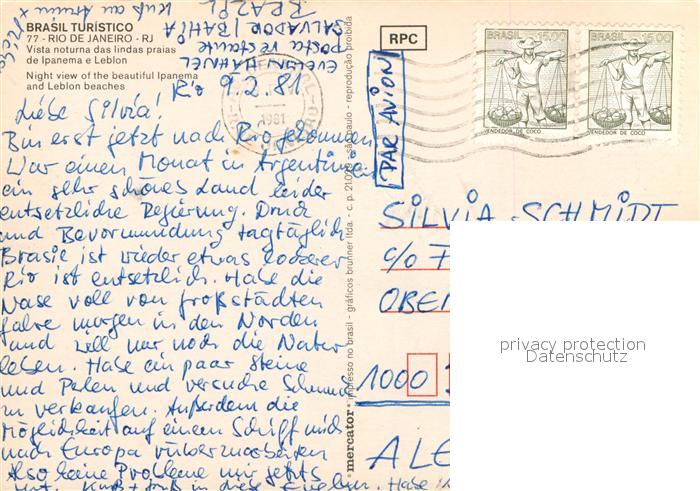 BRASIL TURÍSTICO
77 - RIO DE JANEIRO - RJ
Vista noturna das lindas praias
de Ipanema e Leblon
Night view of the beautiful Ipanema
and Leblon beaches
EVELYN HAHNEL
posta restante
SALVADOR / BAHIA
BRAZIL
Rio 9.2.81
Liebe Silvia!
Bin erst jetzt nach Rio gekommen
War einen Monat in Argentinien
ein sehr schönes Land leider
entsetzliche Regierung. Druck
und Bevormundung tagtäglich
Brasie ist wieder etwas lockerer
Rio ist entsetzlich. Habe die
Nase voll von Großstädten
fahre morgen in den Norden
und will nur noch die Natur
leben. Habe ein paar Steine
und Perlen und versuche Schmuck
zu verkaufen. Außerdem die
Möglichkeit auf einem Schiff mich
nach Europa rüberzuarbeiten
Also keine Probleme mir gehts
gut. Kuß + in diese Evelyn. Habe
mercator • impresso no brasil - gráficos brunner ltda. - c. p. - são paulo - reprodução proibida
RPC
BRASIL 15,00
VENDEDOR DE COCO
BRASIL 15,00
VENDEDOR DE COCO
1981
PAR AVION
SILVIA SCHMIDT
c/o
OBE
1000
ALE
privacy protection
Datenschutz